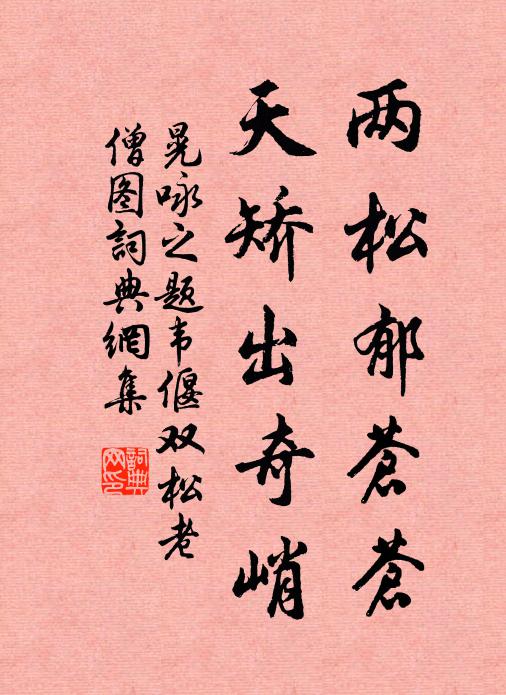 两松郁苍苍
天矫出奇峭
晃咏之题韦偃双松老
僧图詞典網集
詞典网印